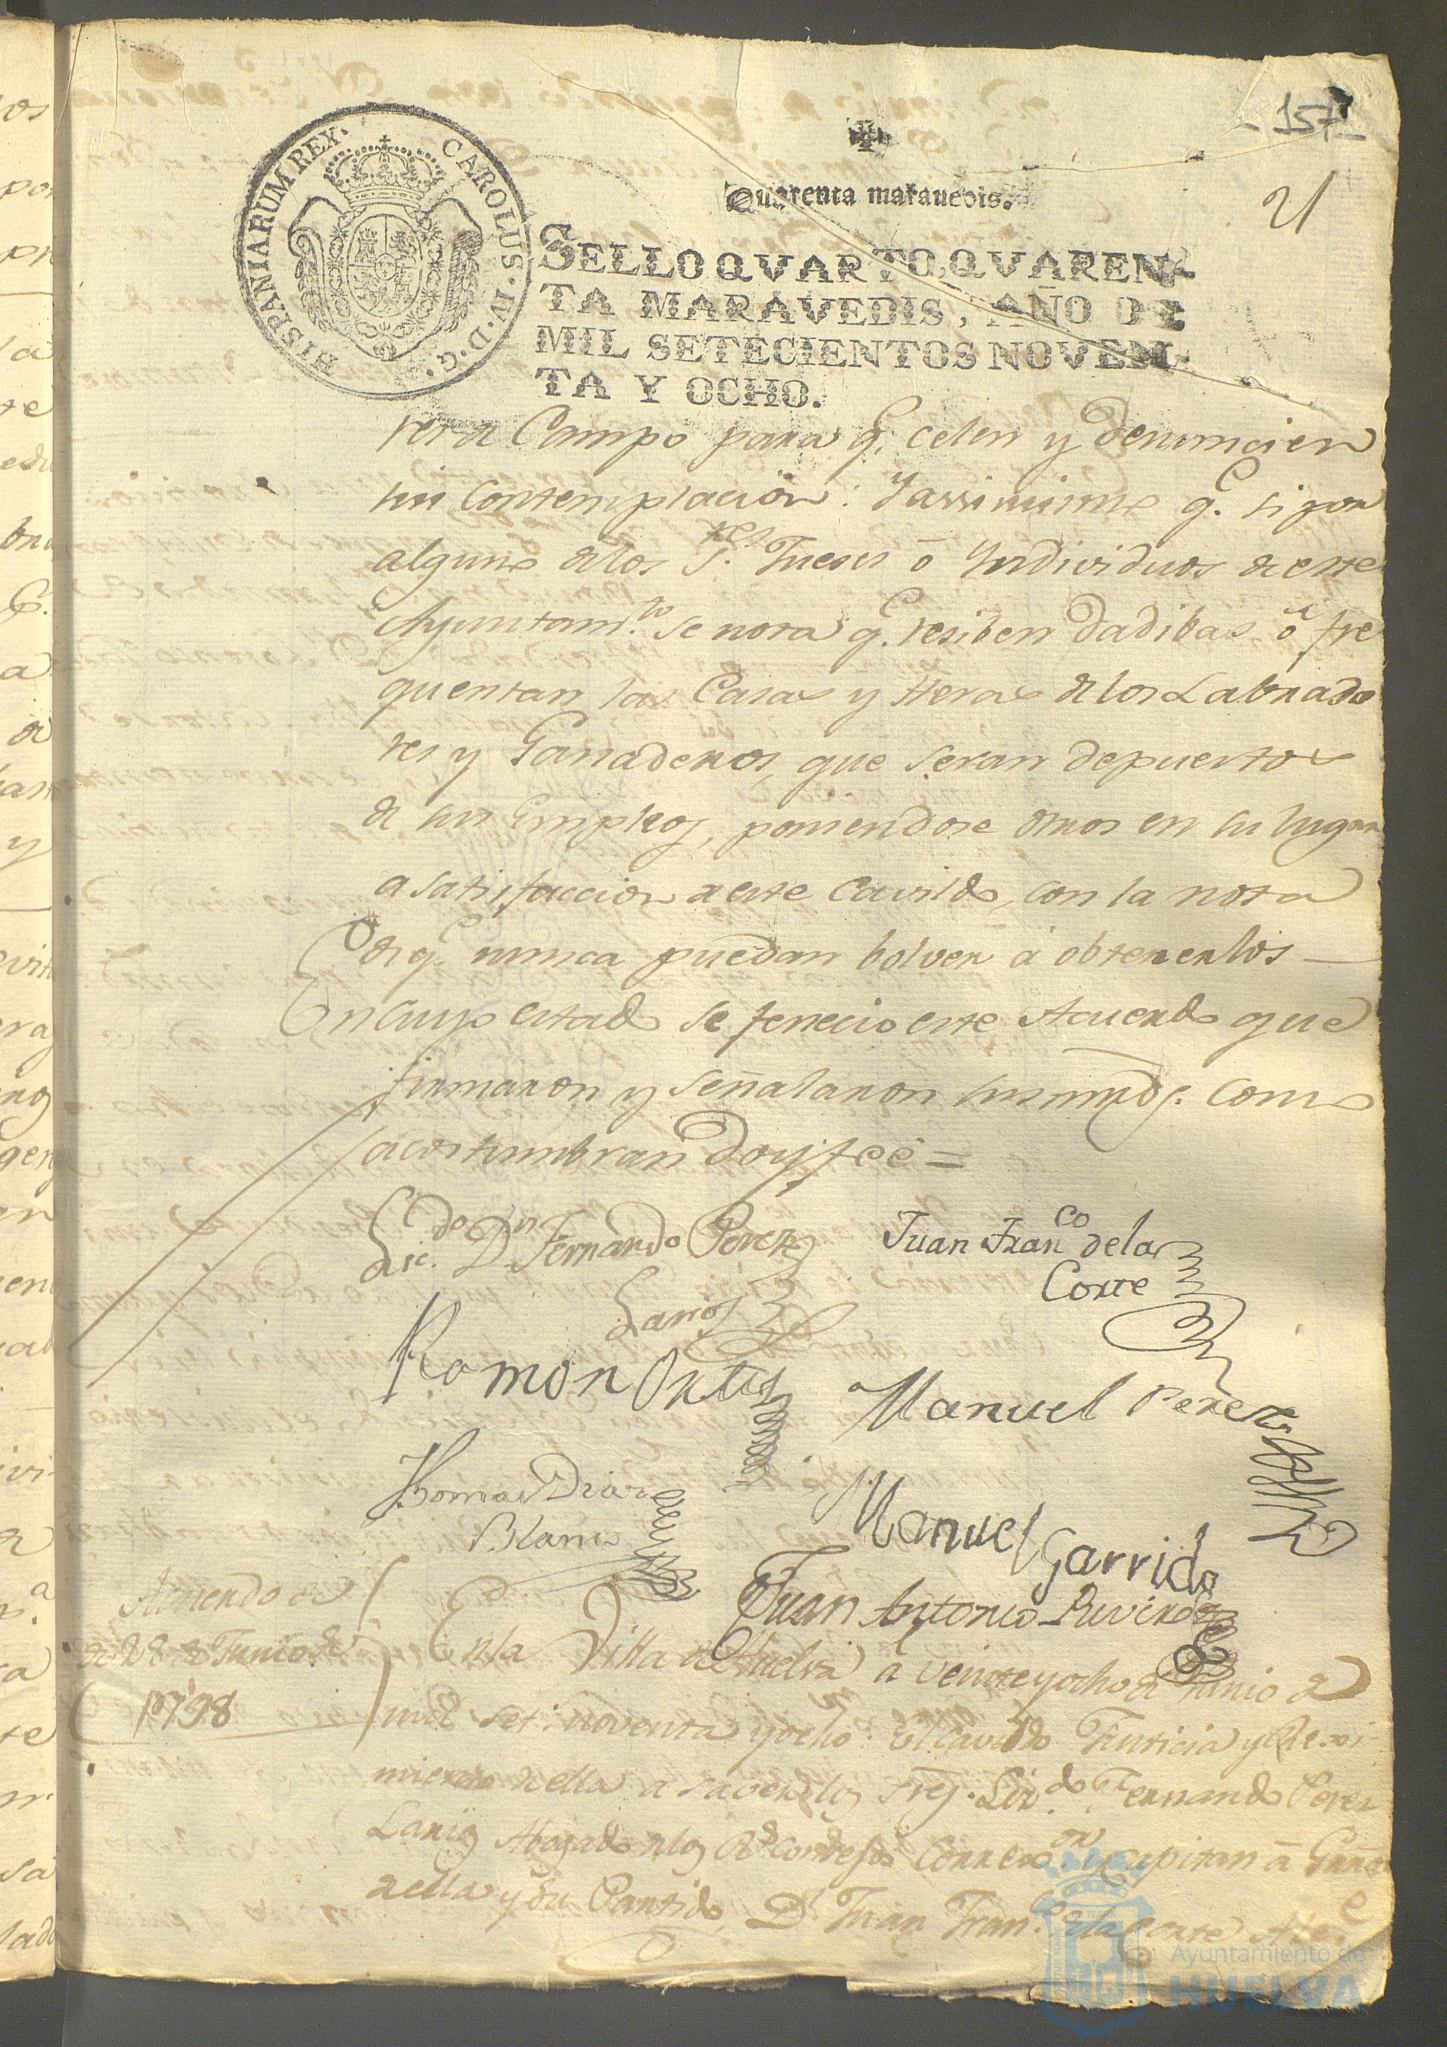 157
21
HISPANIARUM REX. CAROLUS. IV. D. G.
Quarenta maravedis.
SELLO QVARTO, QVAREN-
TA MARAVEDIS, AÑO DE
MIL SETECIENTOS NOVEN-
TA Y OCHO.
Campo para q.e celen y denuncien
sin contemplacion: Yassimismo q.e si por
alguno delos S.res Jueses ô Yndividuos de este
Ayuntam.to se nota q.e resiben dadibas ô fre
quentan las Casas y Heras delos Labrado
res y Ganaderos, que seran depuestos
de sus Empleos, poniendose otros en su lugar
a satisfaccion de este Cavildo, con la nota
de q.e nunca puedan bolver â obtenerlos
En cuyo estado se fenecio este Acuerdo que
firmaron y señalaron sus mrds. como
acostumbran Doy feé =
Lic.do D.n Fernando Perez
Larios
Juan Fran.co dela
Corte
Ramon Ortis
Manuel Perez
Thomas Diaz
Blanco
Manuel Garrido
Juan Antonio
Acuerdo de
de 28 de Junio de
1798
En la Villa de Huelva â veinte y ocho de Junio de
mil set.s noventa y ocho: El Cavildo Justicia y Rexi
miento de ella a saver los Sres. Liz.do Fernando Perez
Larios Abogado de los R.s Consejos Correx.or y Capitan â Grra
de ella y su Partido, D.n Juan Fran.co dela Corte
Ayuntamiento de
HUELVA